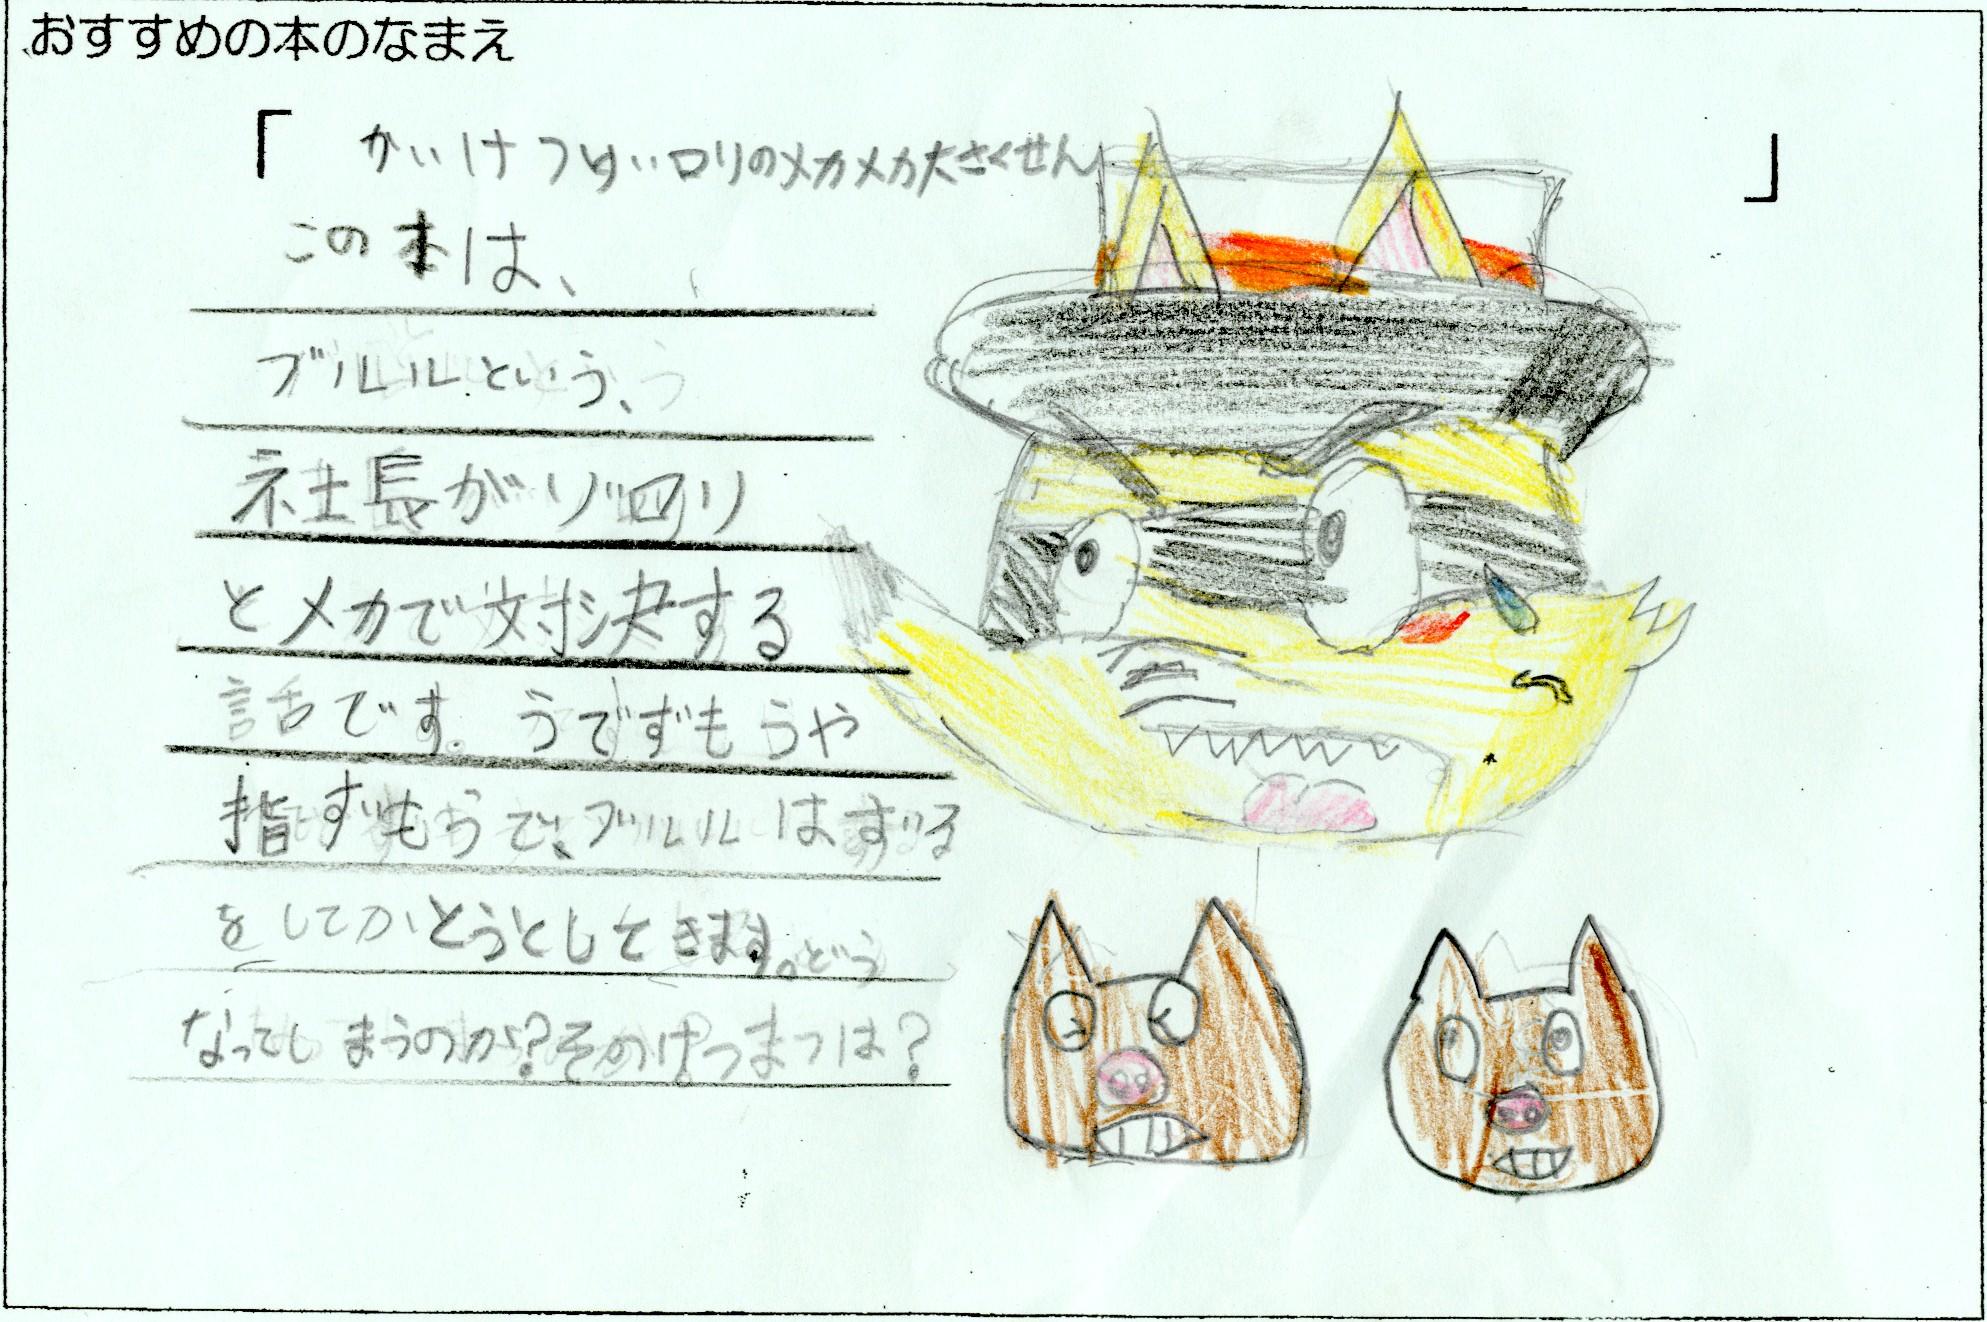 おすすめの本のなまえ
「かいけつゾロリのメカメカ大さくせん」
この本は、
ブルルという、
社長がゾロリ
とメカで対決する
話です。うでずもうや
指ずもうで、ブルルはずる
をしてかとうとしてきます。どう
なってしまうのか?そのけつまつは?